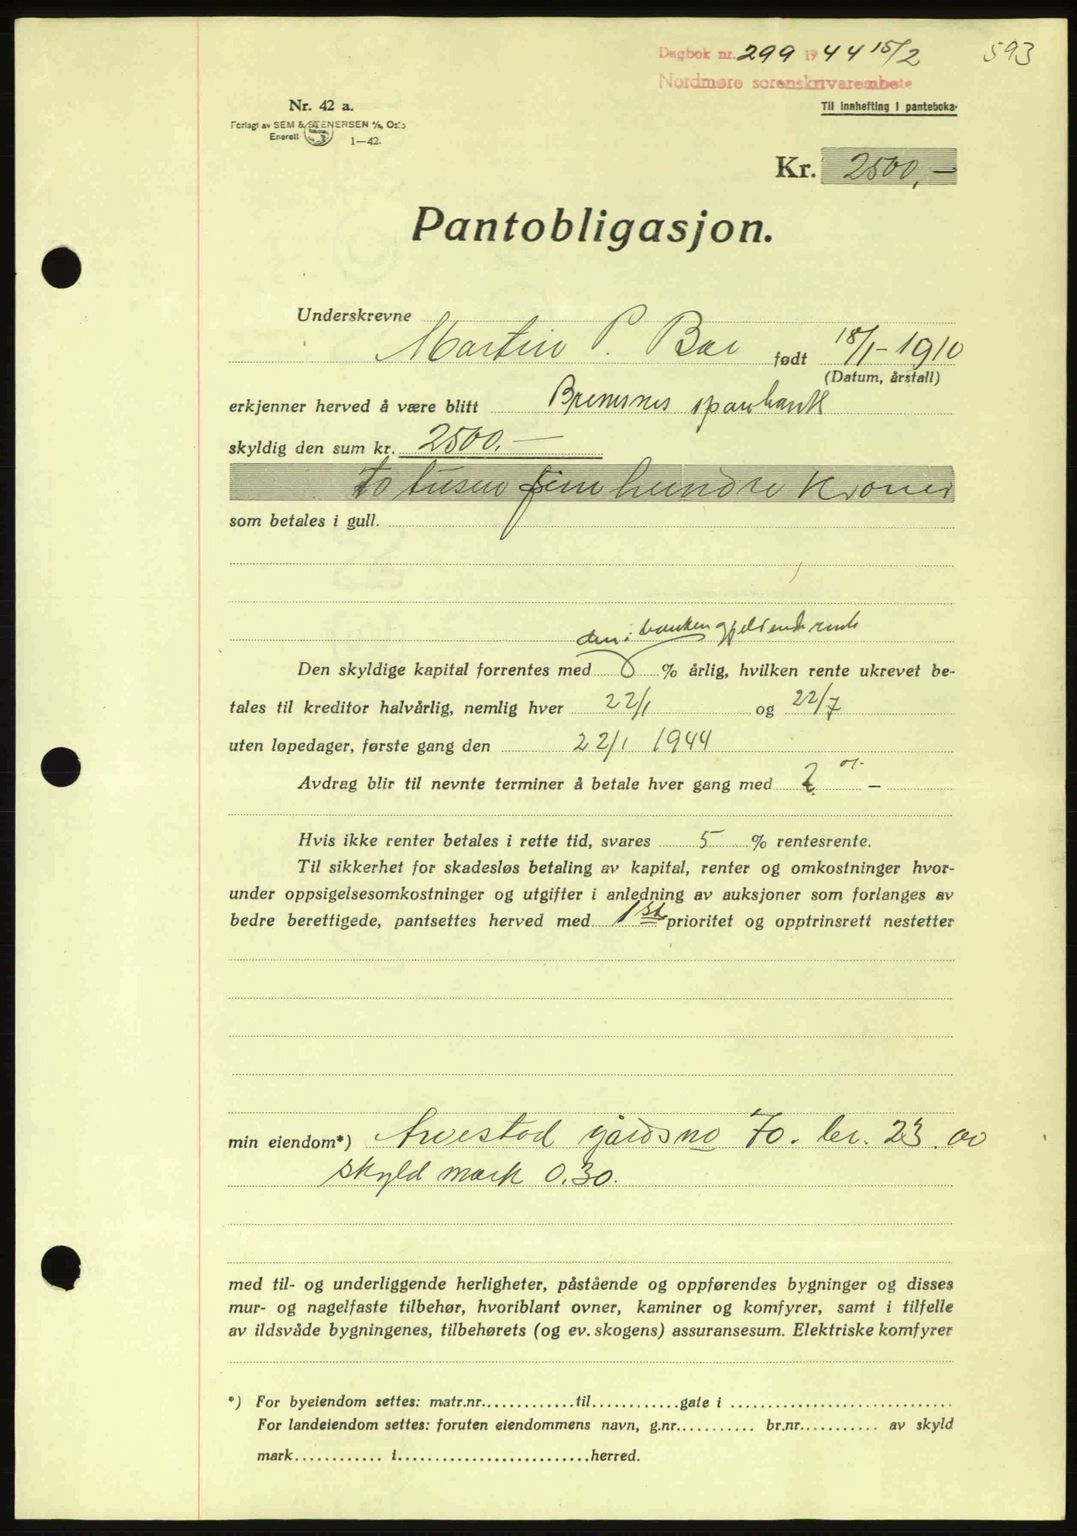 Dagbok nr. 299 1944 15/2 593
Nordmøre sorenskrivarembete
Nr. 42 a.
Til innhefting i panteboka.
Forlagt av SEM & STENERSEN A/S, Oslo
Enerett 1—42.
Kr. 2500,—
Pantobligasjon.
Underskrevne
Martin P. Bae født 18/1-1910
(Datum, årstall)
erkjenner herved å være blitt Bremsnes sparebank
skyldig den sum kr. 2500.—
to tusen fem hundre kroner
som betales i gull.
den i banken gjeldende rente
Den skyldige kapital forrentes med % årlig, hvilken rente ukrevet be-
tales til kreditor halvårlig, nemlig hver 22/1 og 22/7
uten løpedager, første gang den 22/1 1944
Avdrag blir til nevnte terminer å betale hver gang med –
Hvis ikke renter betales i rette tid, svares 5 % rentesrente.
Til sikkerhet for skadesløs betaling av kapital, renter og omkostninger hvor-
under oppsigelsesomkostninger og utgifter i anledning av auksjoner som forlanges av
bedre berettigede, pantsettes herved med 1st prioritet og opptrinsrett nestetter
min eiendom*) gårdsno 70. br. 23.
skyld mark 0.30.
med til- og underliggende herligheter, påstående og oppførendes bygninger og disses
mur- og nagelfaste tilbehør, hvoriblant ovner, kaminer og komfyrer, samt i tilfelle
av ildsvåde bygningenes, tilbehørets (og ev. skogens) assuransesum. Elektriske komfyrer
*) For byeiendom settes: matr.nr.............til............gate i ...............................
For landeiendom settes: foruten eiendommens navn, g.nr.......... br.nr.......... av skyld
mark............ i..........................herred.